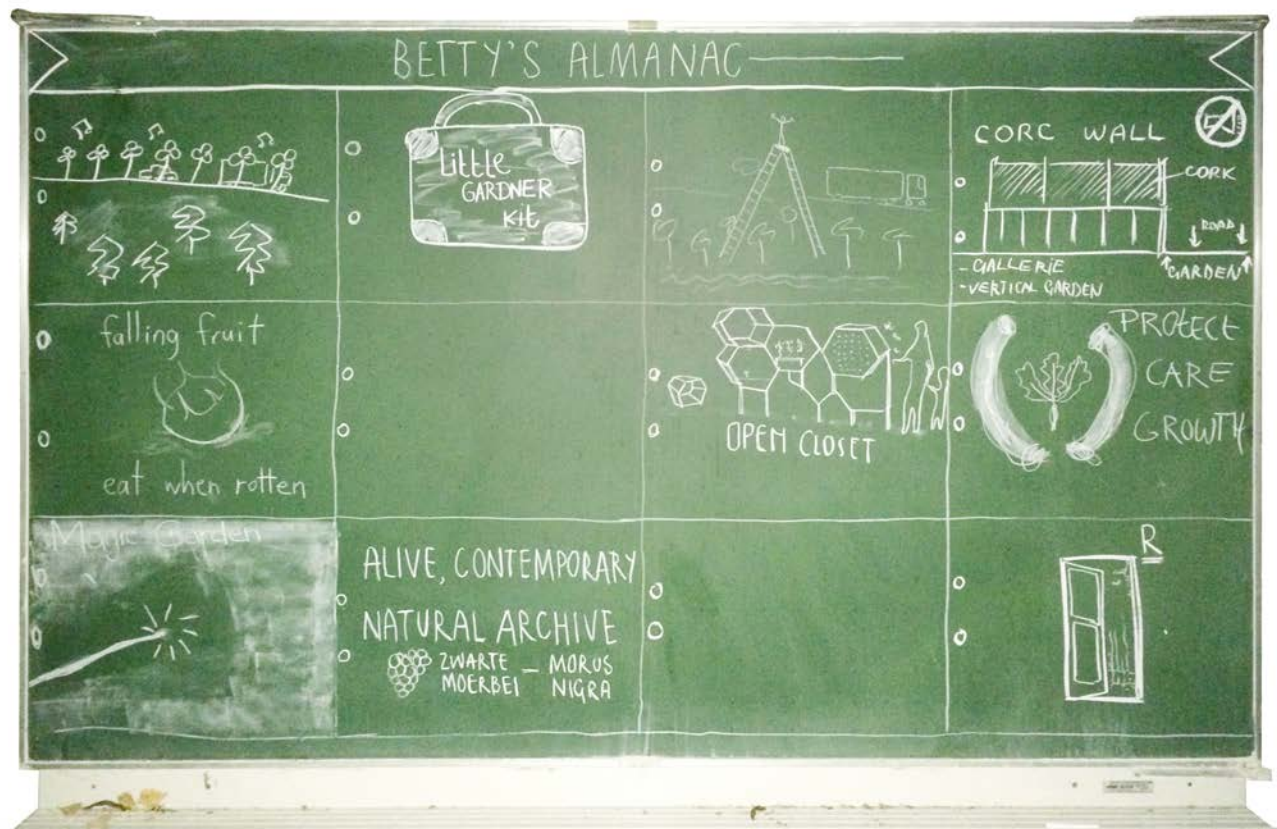 BETTY'S ALMANAC
Little
GARDNER
Kit
CORC WALL
CORK
ROAD
GARDEN
- GALLERIE
- VERTICAL GARDEN
falling fruit
eat when rotten
OPEN CLOSET
PROTECT
CARE
GROWTH
Magic Garden
ALIVE, CONTEMPORARY
NATURAL ARCHIVE
ZWARTE - MORUS
MOERBEI NIGRA
R